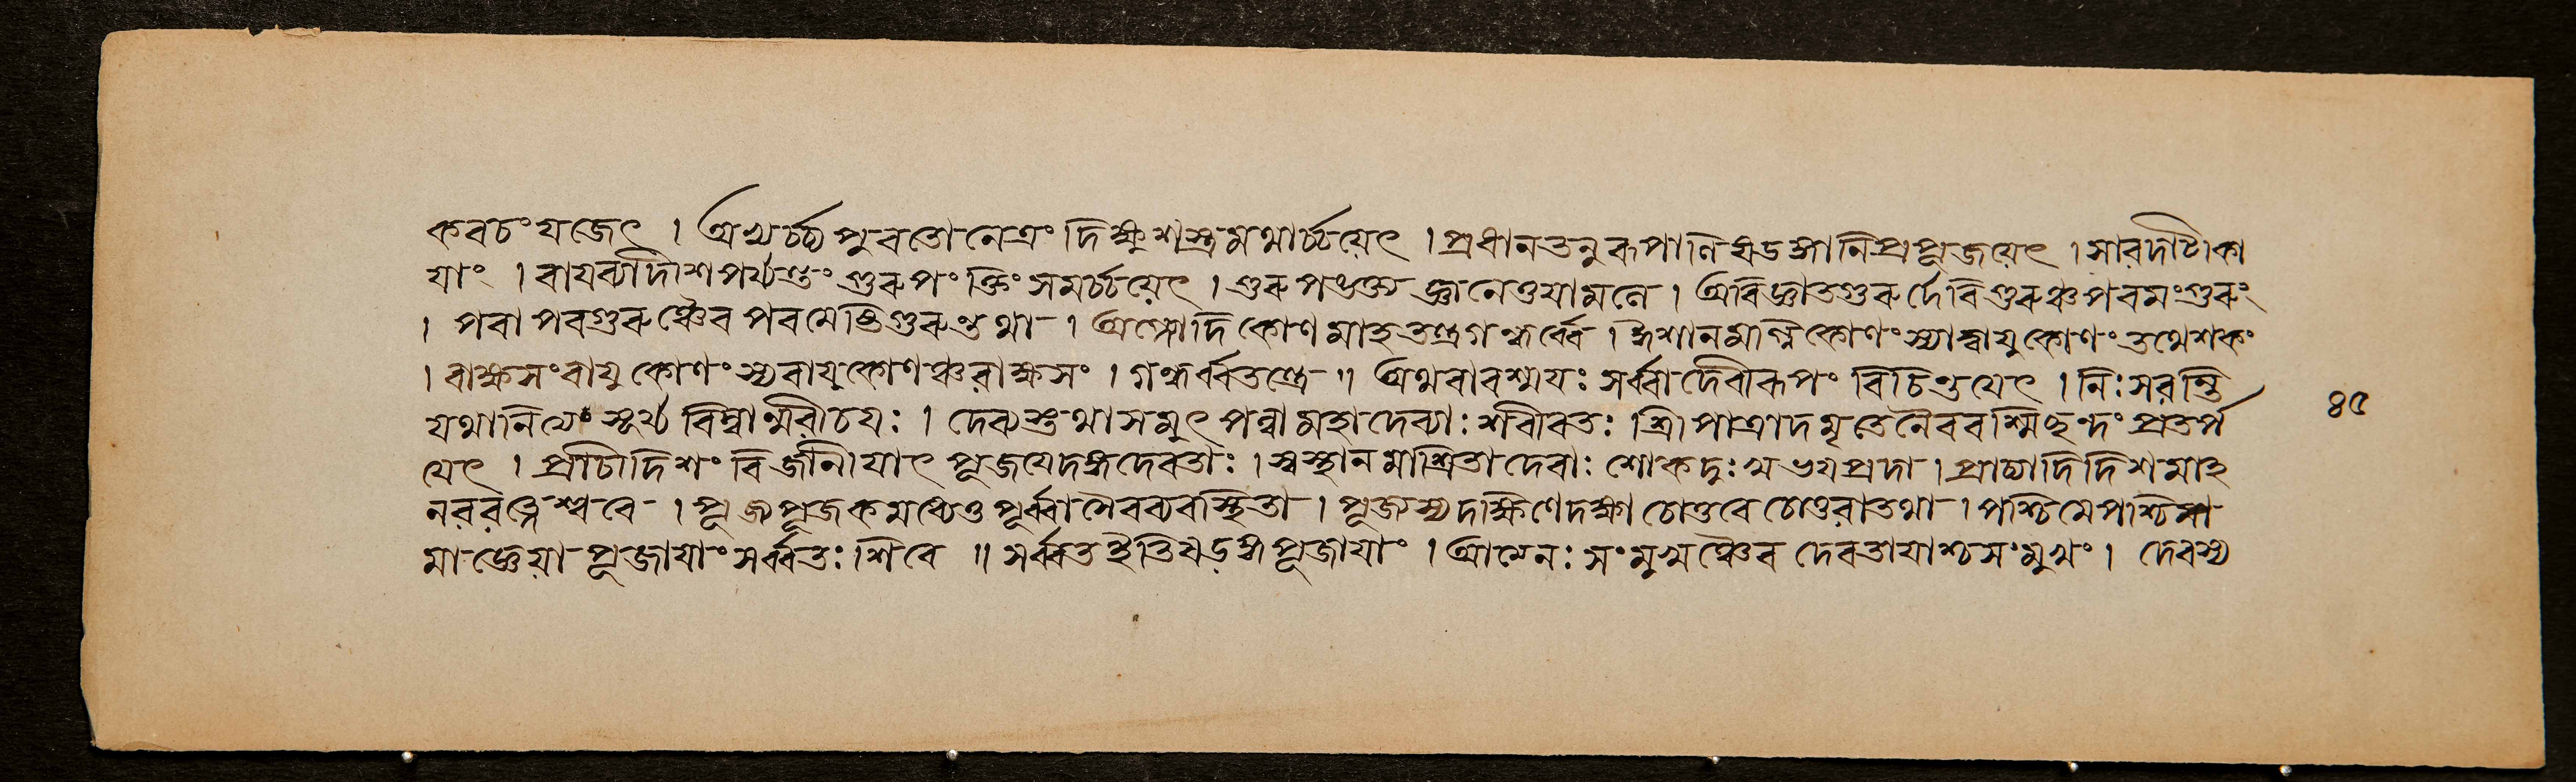 কবচং যজেৎ । অভ্যর্চ্চ্য পুরতো নেত্রং দিক্ষ্বশস্ত্রমথার্চ্চয়েৎ । প্রধানতনুরূপাণি ষড়ঙ্গানি প্রপূজয়েৎ । সারদাটীকা
যাং । বায়ব্যাদীশপর্য্যন্তং গুরুপংক্তিং সমর্চ্চয়েৎ । গুরুপঙক্ত্যজ্ঞানেতু যামলে । অবিজ্ঞাতগুরুর্দেবি গুরুঞ্চ পরমংগুরুং
। পরাপরগুরুঞ্চৈব পরমেষ্ঠিগুরুন্তথা । অগ্ন্যাদিকোণমাহ তন্ত্রগন্ধর্ব্বে । ঈশানমাগ্নিকোণং স্যাদ্বায়ুকোণং তথেশকং
। রাক্ষসং বায়ুকোণং স্যবায়ুকোণঞ্চ রাক্ষসং । গন্ধর্ব্বতন্ত্রে ॥ অথবা রশ্ময়ঃ সর্ব্বা দেবীরূপং বিচিন্তয়েৎ । নিঃসরন্তি
যথা নিত্যং সূর্য্যবিম্বান্মরীচয়ঃ । দেব্যস্তথা সমুৎপন্না মহাদেব্যাঃ শরীরতঃ শ্রীপাত্রাদমৃতেনৈব রশ্মিবৃন্দং প্রতর্প
য়েৎ । প্রাচীদিশং বিজানীয়াৎ পূজয়েদঙ্গদেবতাঃ । স্বস্থানমাশ্রিতা দেবাঃ শোকদুঃখভয়প্রদা । প্রাচ্যাদিদিশমাহ
নবরত্নেশ্বরে । পূজ্যপূজকমধ্যেতু পূর্ব্বা সৈব ব্যবস্থিতা । পূজ্যস্য দক্ষিণে দক্ষা চোত্তরে চোত্তরা তথা । পশ্চিমে পশ্চিমা
মাজ্ঞেয়া পূজায়াং সর্ব্বতঃ শিবে ॥ সর্ব্বত ইতি ষড়ঙ্গপূজায়াং । আত্মনঃ সংমুখঞ্চৈব দেবতায়াশ্চ সংমুখং । দেবস্য
৪৫